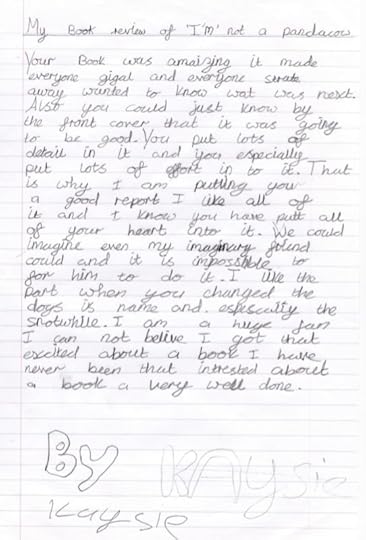 My Book review of 'I'M' not a pandacow
Your Book was amaizing it made
everyone gigal and everyone strate
away wanted to know wat was next.
Also you could just know by
the front cover that it was going
to be good. You put lots of
detail in it and you especially
put lots of effort in to it. That
is why I am putting your
a good report I like all of
it and I know you have putt all
of your heart into it. We could
imagine even my imaginary friend
could and it is impossible to
for him to do it. I like the
part when you changed the
dogs is name and. espicually the
snotwhile. I am a huge fan
I can not belive I got that
excited about a book I have
never been that intrested about
a book a very well done.
BY KAysie
Kaysie